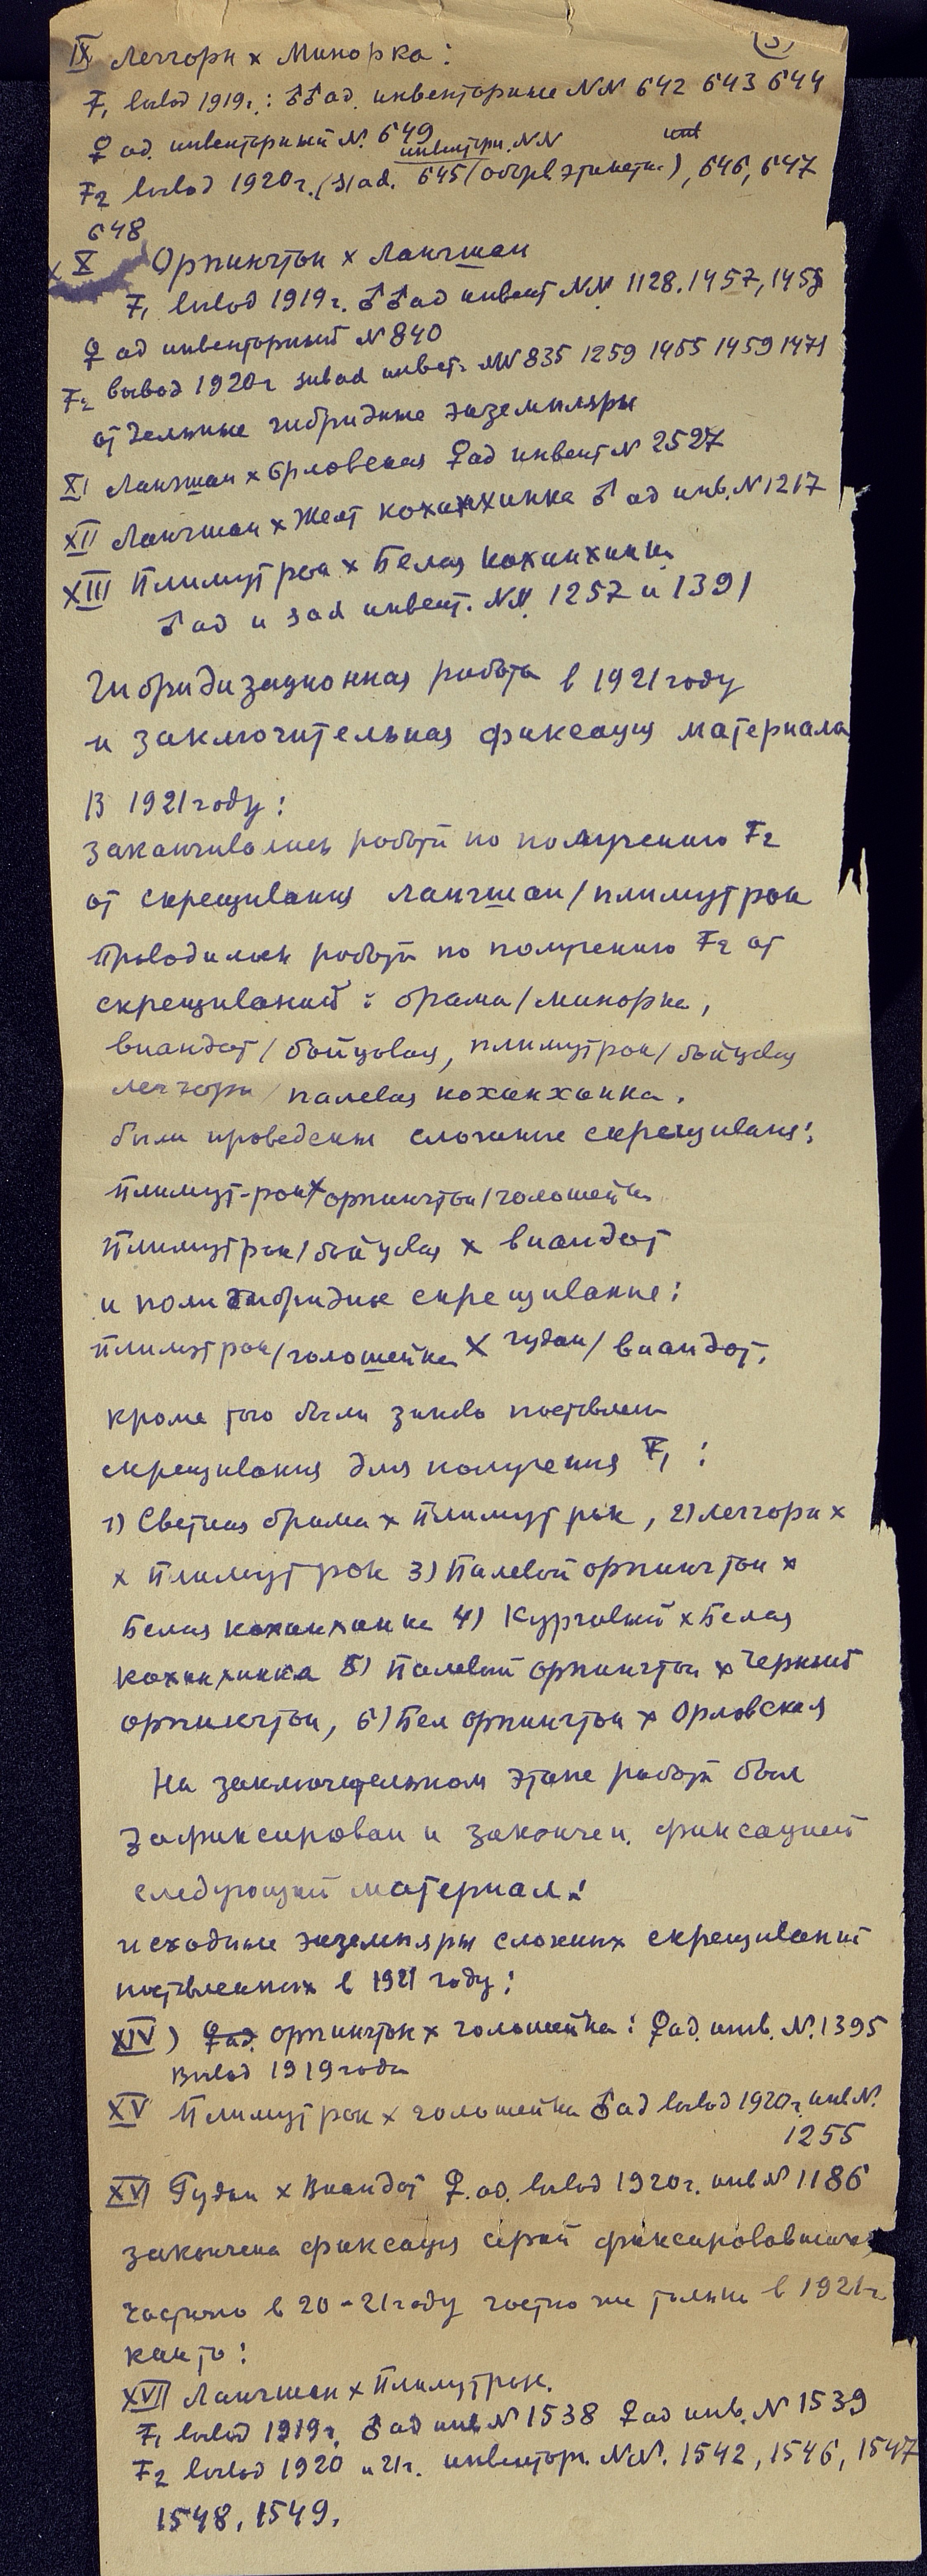 (3)
IX Леггорн х Минорка:
F₁ вывод 1919г.: ♂♂ ad. инвентарные NN 642 643 644
♀ ad. инвентарный N. 649
инвентарн. NN
F₂ вывод 1920г. ad. 645 (оборв. этикетка), 646, 647
648
X Орпингтон х Лангшан
F₁ вывод 1919г. ♂♂ ad инвент NN 1128. 1457, 1458
♀ ad инвентарный N 840
F₂ вывод 1920г subad инвет. NN 835 1259 1455 1459 1471
отдельные гибридные экземпляры
XI Лангшан х Орловская ♀ ad инвент N 2527
XII Лангшан х Желт кохинхинка ♂ ad инв. N 1217
XIII Плимутрок х Белая кохинхинка
♂ ad и инвент. NN 1257 и 1391
Гибридизационная работа в 1921 году
и заключительная фиксация материала
В 1921 году:
заканчивались работы по получению F₂
от скрещивания лангшан/плимутрок
Проводились работы по получению F₂ от
скрещиваний: брама/минорка,
виандот/бойцовая, плимутрок/бойцовая
леггорн/палевая кохинхинка.
были проведены сложные скрещивания:
Плимут-рокхорпингтон/голошейка
Плимутрок/бойцовая х виандот
и полигибридное скрещивание:
плимутрок/голошейка х гудан/виандот.
кроме того были заново поставлены
скрещивания для получения F₁:
1) Светлая брама х Плимут рок, 2) леггорн х
х Плимут рок 3) Палевый орпингтон х
Белая кохинхинка 4) Курговый х Белая
кохинхинка 5) Палевый орпингтон х Черный
орпингтон, 6) Бел орпингтон х Орловская
На заключительном этапе работы был
зафиксирован и закончен фиксацией
следующий материал:
исходные экземпляры сложных скрещиваний
поставленных в 1921 году:
XIV) ♀ad. орпингтон х голошейка: ♀ ad. инв. N. 1395
вывод 1919 года
XV Плимут рок х голошейка ♂ ad вывод 1920г. инв N.
1255
XVI Гудан х Виандот ♀. ad. вывод 1920г. инв N 1186
закончена фиксация серий фиксировавшихся
частично в 20-21 году частью же только в 1921г
как то:
XVII Лангшан х Плимутрок.
F₁ вывод 1919г. ♂ ad инв N 1538 ♀ ad инв. N 1539
F₂ вывод 1920 и 21г. инвентарн. N.N. 1542, 1546, 1547
1548, 1549.